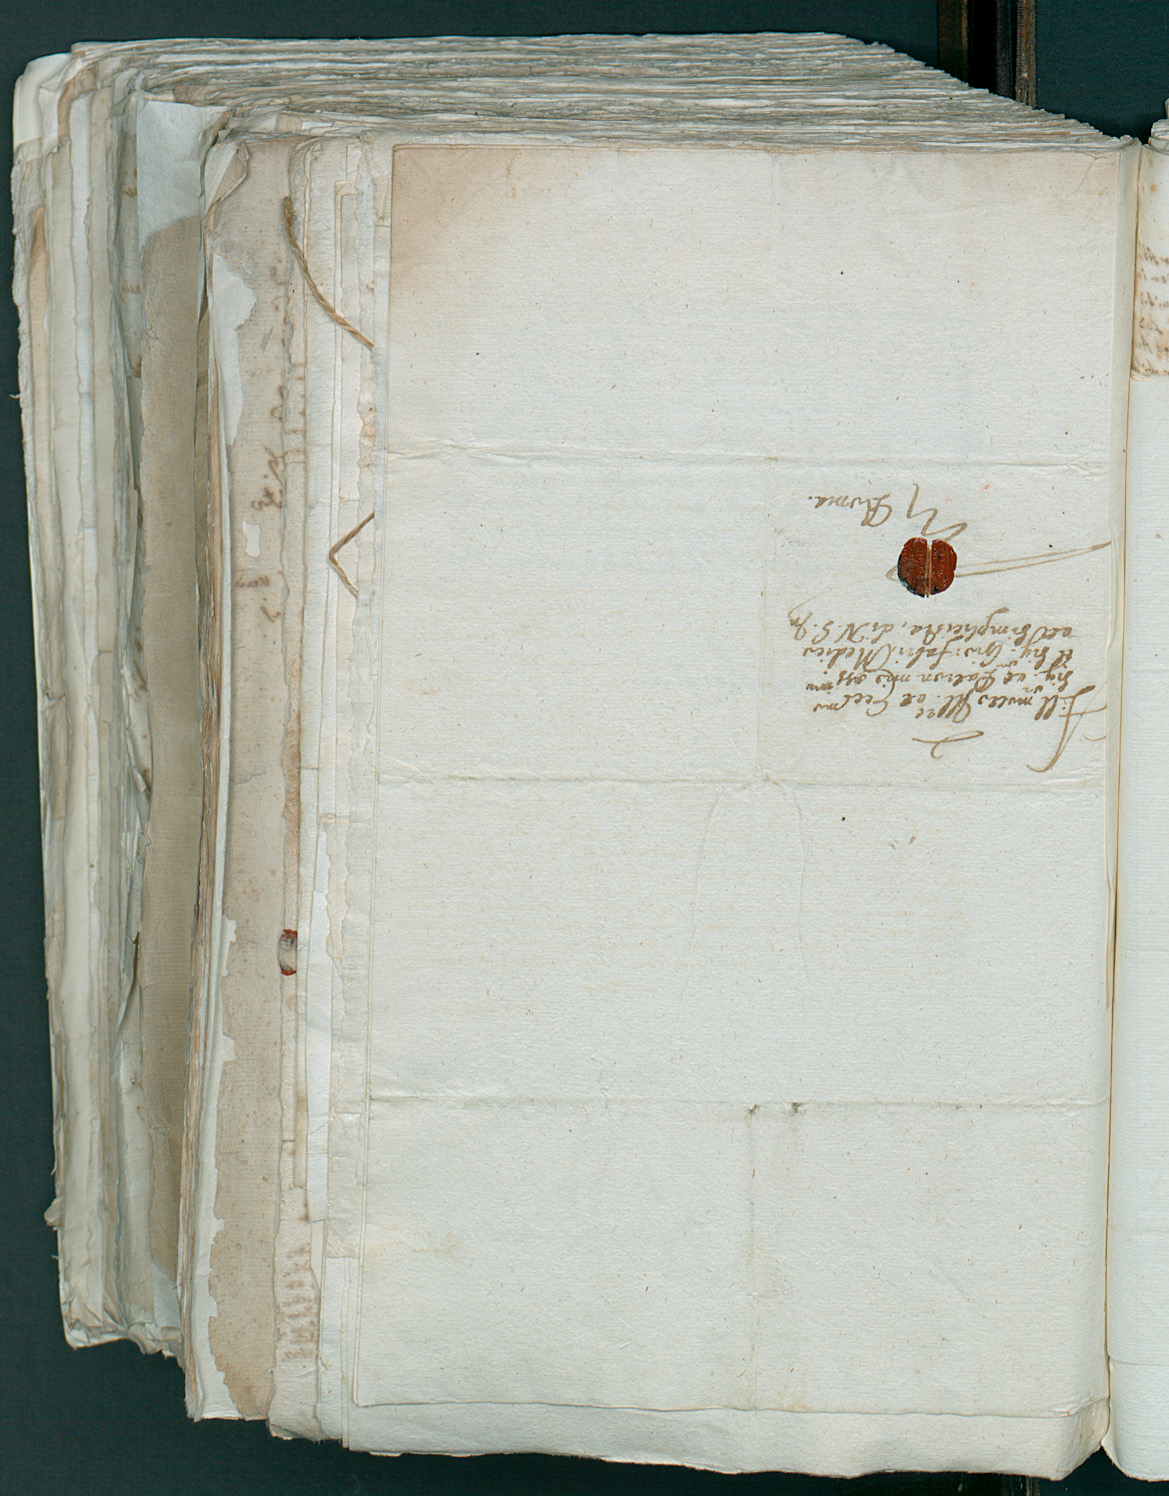 All molto Ill.re et Ecc.mo
Sig.r et Patron mio oss.mo
Il Sig.r Gio: Fabri Medico
et Simplicista, di N. S. In
Roma.